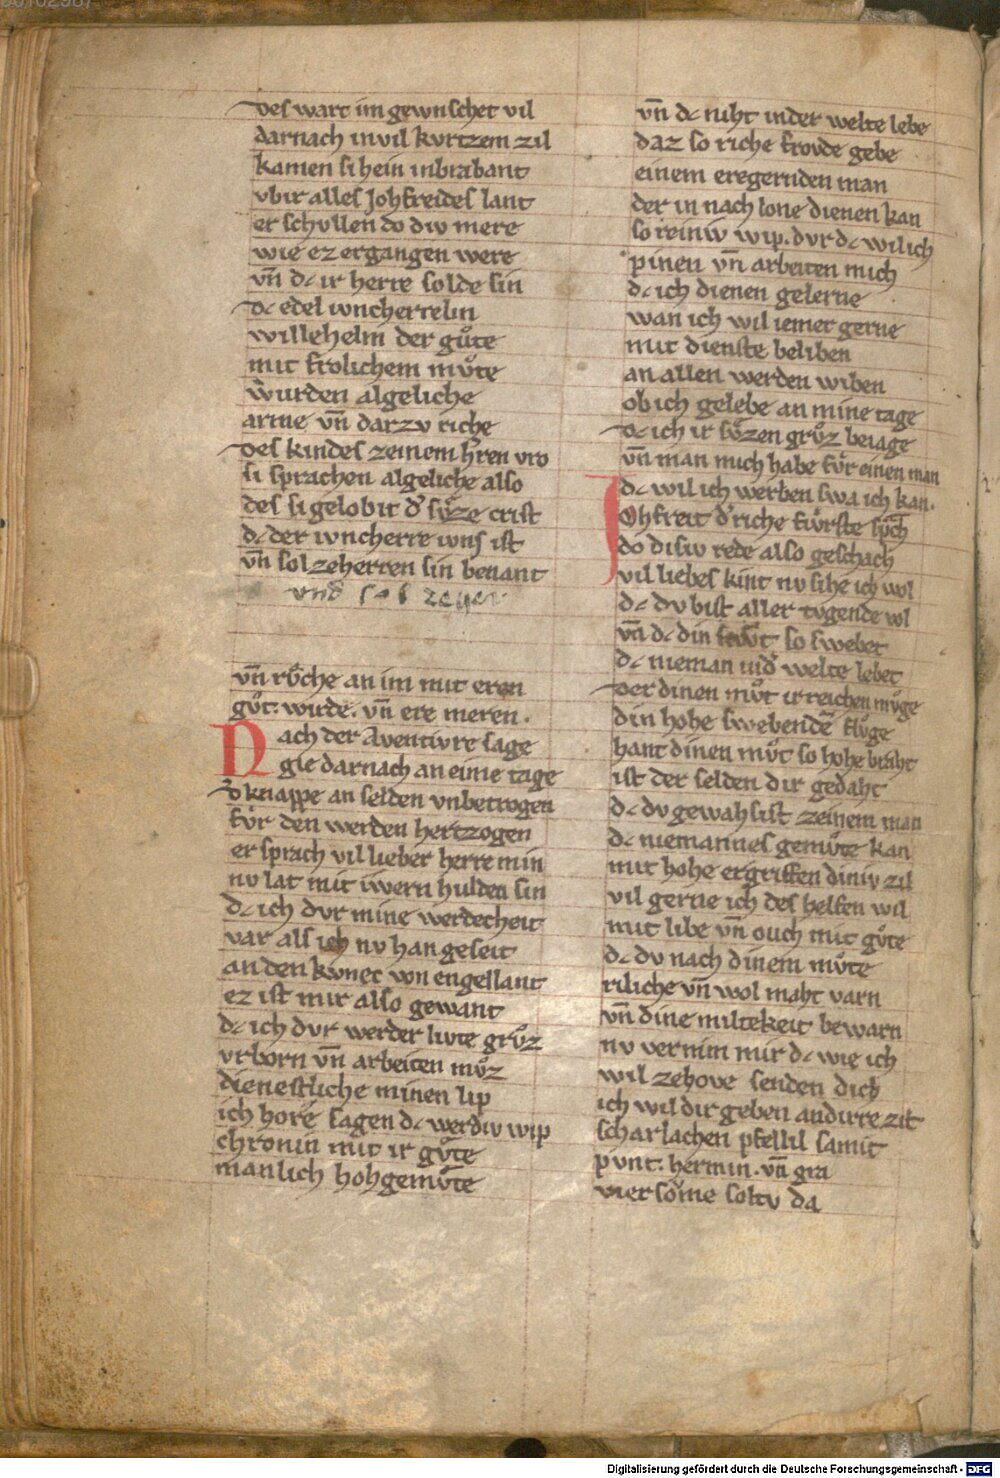 des wart im gewnschet vil
darnach in vil kvrtzem zil
kamen si hein in brabant
vbir alles Johfreides lant
er schvllen do div mere
wie ez ergangen were
vn̄ dc ir herre solde sin
dc edel ivncherrelin
willehelm der gůte
mit frolichem mv̊te
wurden algeliche
arme vn̄ darzv riche
des kindes zeinem h̄ren vro
si sprachen algeliche also
des si gelobit d͛ sv̊ze crist
dc der ivncherre vns ist
vn̄ sol zeherren sin benant
vnd sol
vn̄ rv̊che an im mit eren
gv̊t. wirde. vn̄ ere meren.
Nach der Aventivre sage
gie darnach an eime tage
d͛ knappe an selden vnbetrogen
fv̊r den werden hertzogen
er sprach vil lieber herre min
nv lat mit iwern hulden sin
dc ich dvr mine werdecheit
var als ich nv han geseit
an den kvnec von engellant
ez ist mir also gewant
dc ich dvr werder livte grv̊z
vrborn vn̄ arbeiten mv̊z
dienestliche minen lip
ich hore sagen dc werdiv wip
chronin mit ir gv̊te
manlich hohgemv̊te
vn̄ dc niht in der welte lebe
daz so riche frovde gebe
einem eregernden man
der in nach lone dienen kan
so reiniv wip. dvr dc wil ich
pinen vn̄ arbeiten mich
dc ich dienen gelerne
wan ich wil iemer gerne
mit dienste beliben
an allen werden wiben
ob ich gelebe an mine tage
dc ich ir sv̊zen grv̊z beiage
vn̄ man mich habe fv̊r einen man
dc wil ich werben swa ich kan.
Johfreit d͛ riche fv̊rste sp̄ch
do disiv rede also geschach
vil liebes kint nv sihe ich wol
dc dv bist aller tvgende vol
vn̄ dc din mv̊t so swebet
dc nieman in d͛ welte lebet
der dinen mv̊t irreichen mv̊ge
din hohe swebendē flv̊ge
hant dinen mv̊t so hohe braht
ist der selden dir gedaht
dc dv gewahsist zeinem man
dc niemannes gemv̊te kan
mit hohe ergriffen diniv zil
vil gerne ich des helfen wil
mit libe vn̄ ouch mit gv̊te
dc dv nach dinem mv̊te
riliche vn̄ wol maht varn
vn̄ dine miltekeit bewarn
nv vernim mir dc wie ich
wil zehove senden dich
ich wil dir geben an dirre zit
scharlachen pfellil samit
pvnt. hermin. vn̄ gra
vier sovme soltv da
Digitalisierung gefördert durch die Deutsche Forschungsgemeinschaft - DFG